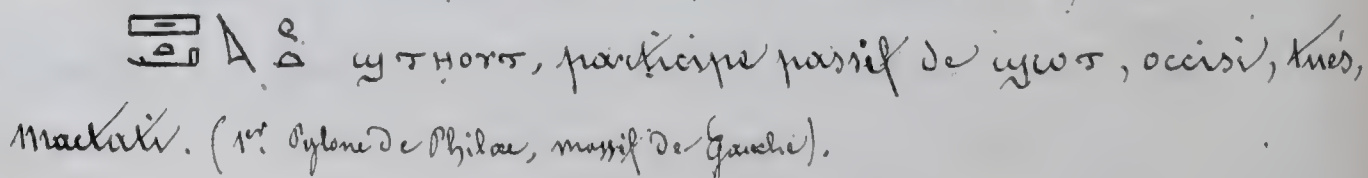 ϣⲧⲏⲟⲩⲧ, participe passif de ϣⲱⲧ, occisi, tués,
mactati. (1er. Pylone de Philae, massif de Gauche).